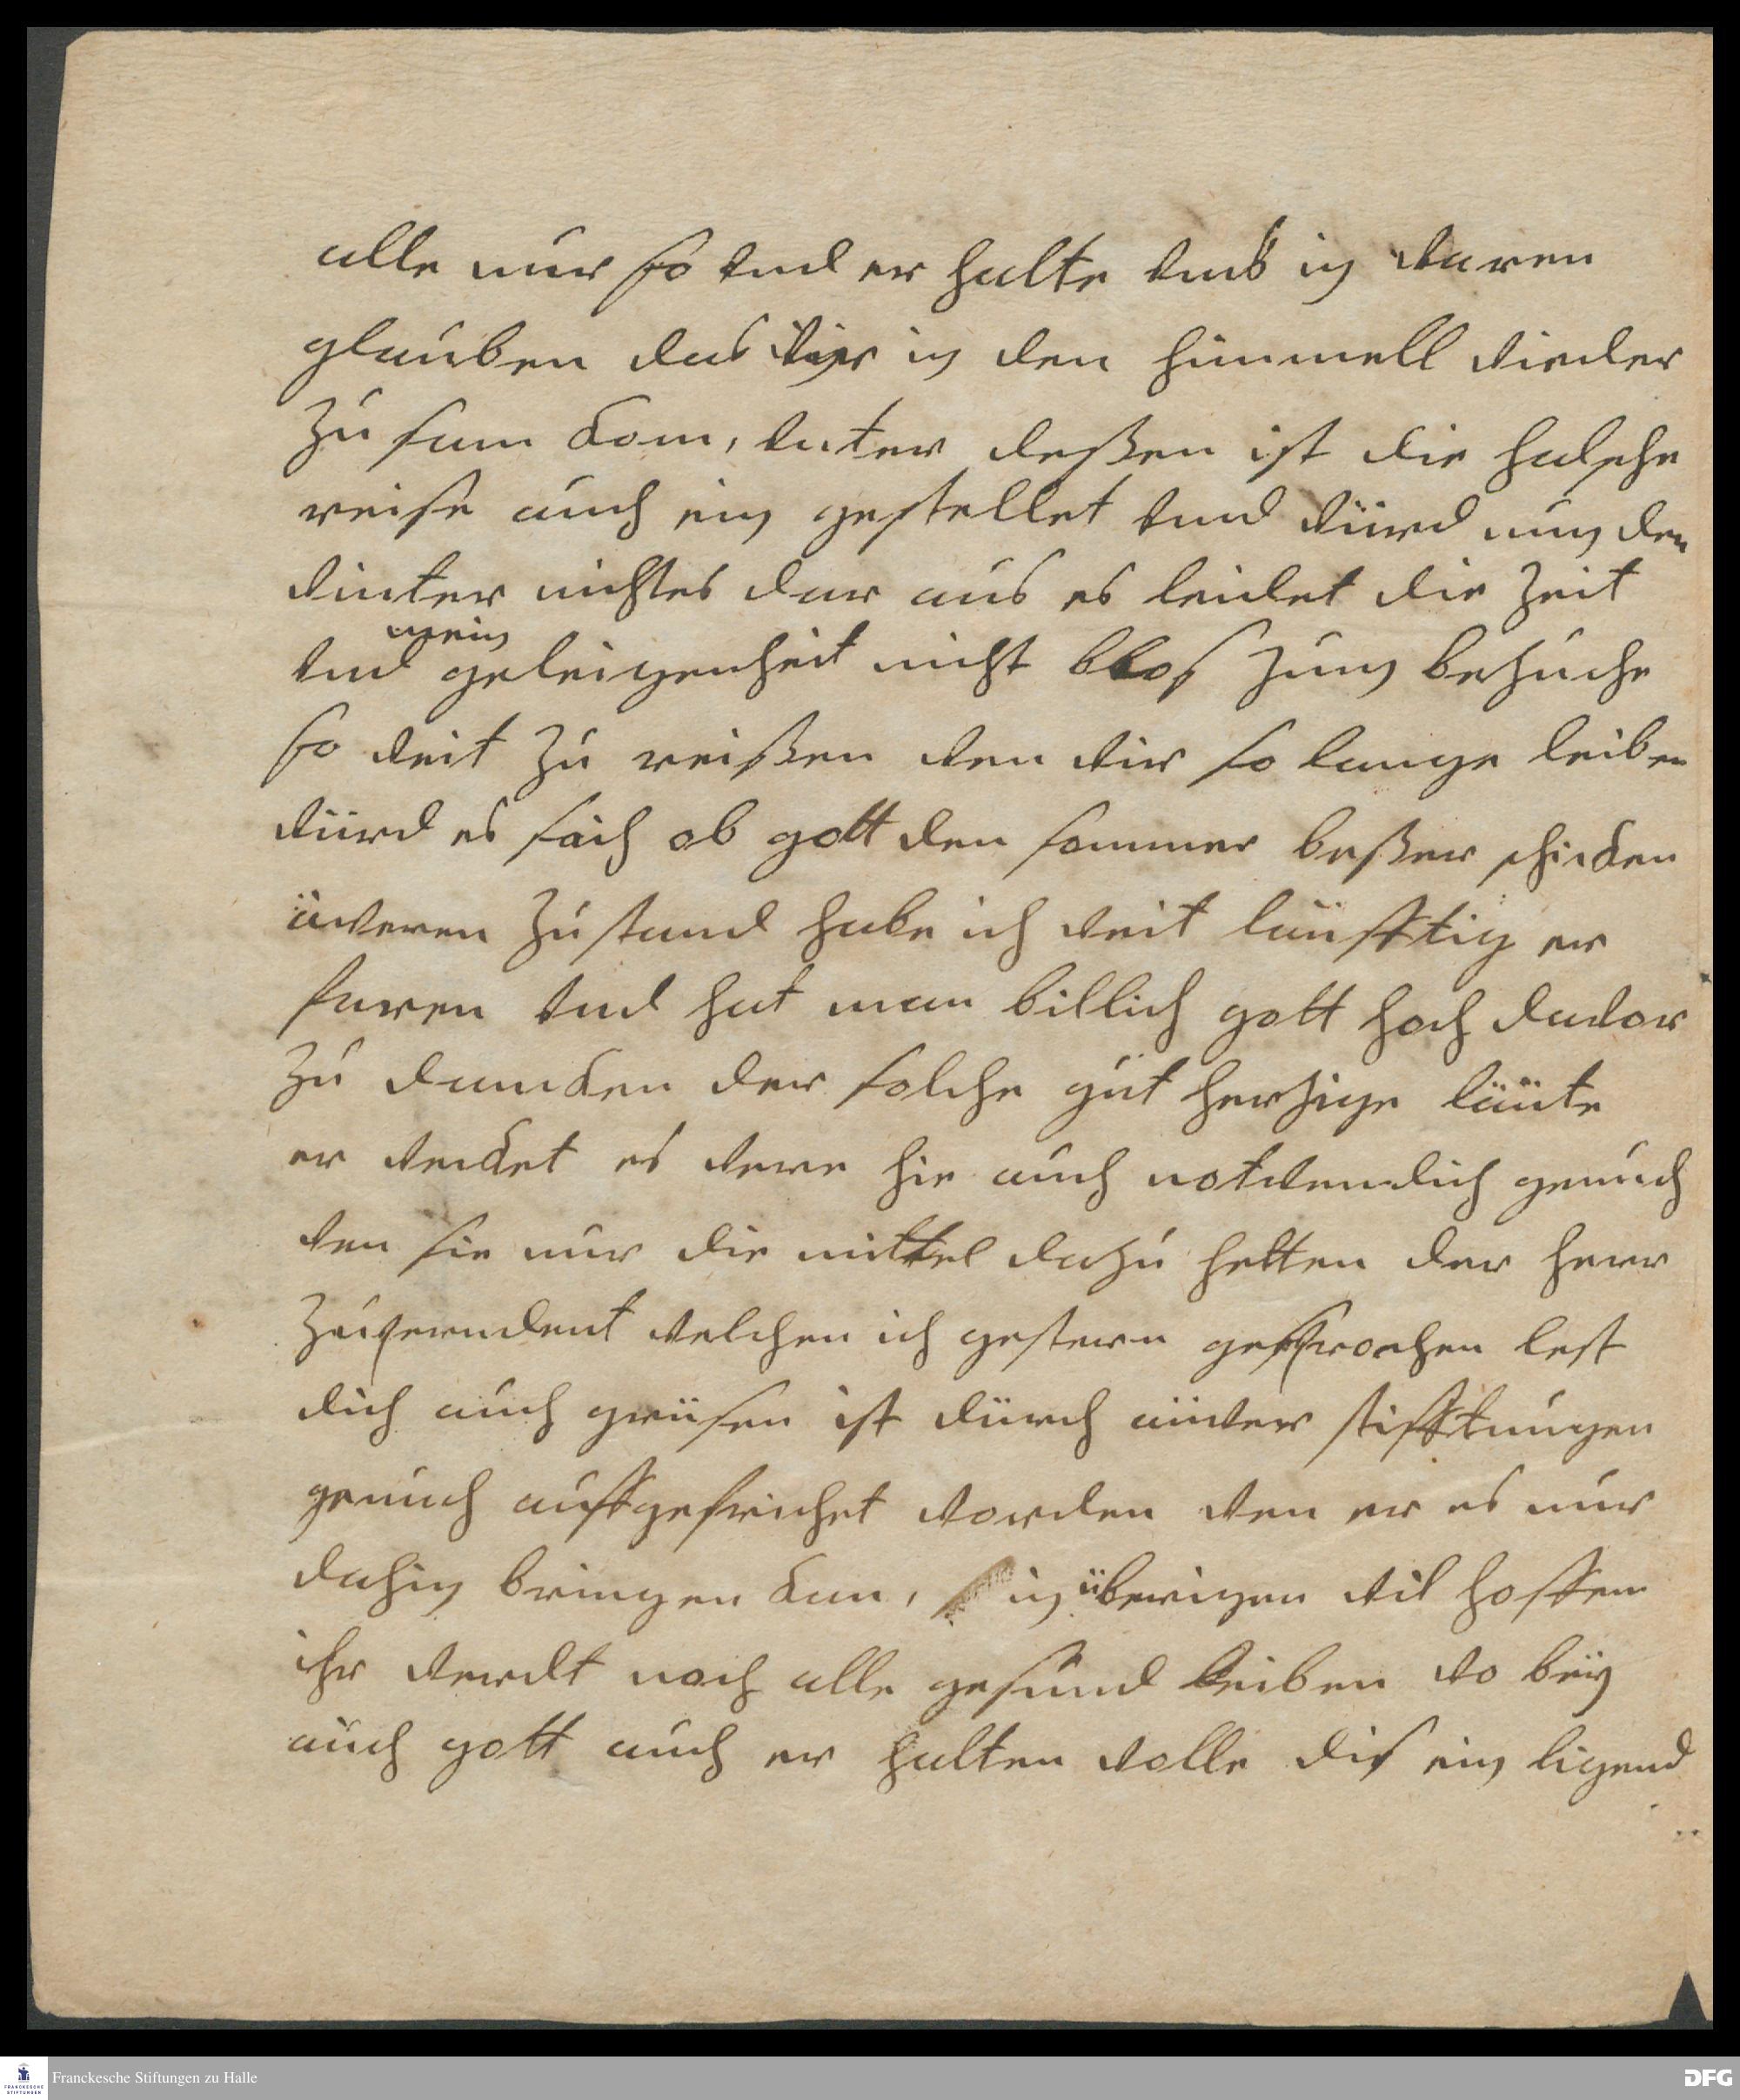 alle nur so vnd er halte vns in waren
glauben das wir in den himmell wieder
zu sam kom, vnter deßen ist die halsche
reise auch ein gestellet vnd würd nun den
winter nichtes dar aus es leidet die zeit
vnd mein geleigenheit nicht blos zum besuche
so weit zu reißen wen wir so lange leiben
würd es sich ob gott den sommer beßer schicken
üweren zustand habe ich weit läufftig er
faren vnd hat man billich gott hoch davor
zu dancken der solche gut hertzige läute
er wecket es were hie auch notwendich genuch
wen sie nur die mittel dazu hetten der herr
welchen ich gestern gesprochen lest
dich auch grüsen ist dürch üwer stifftungen
genuch auffgefrichet worden wen er es nur
dahin bringen kan, in überigen wil hoffen
ihr werdt noch alle gesund leiben wo beÿ
auch gott euch er halten wolle dis ein ligend
Franckesche Stiftungen zu Halle
DFG
FRANCKESCHE
STIFTUNGEN